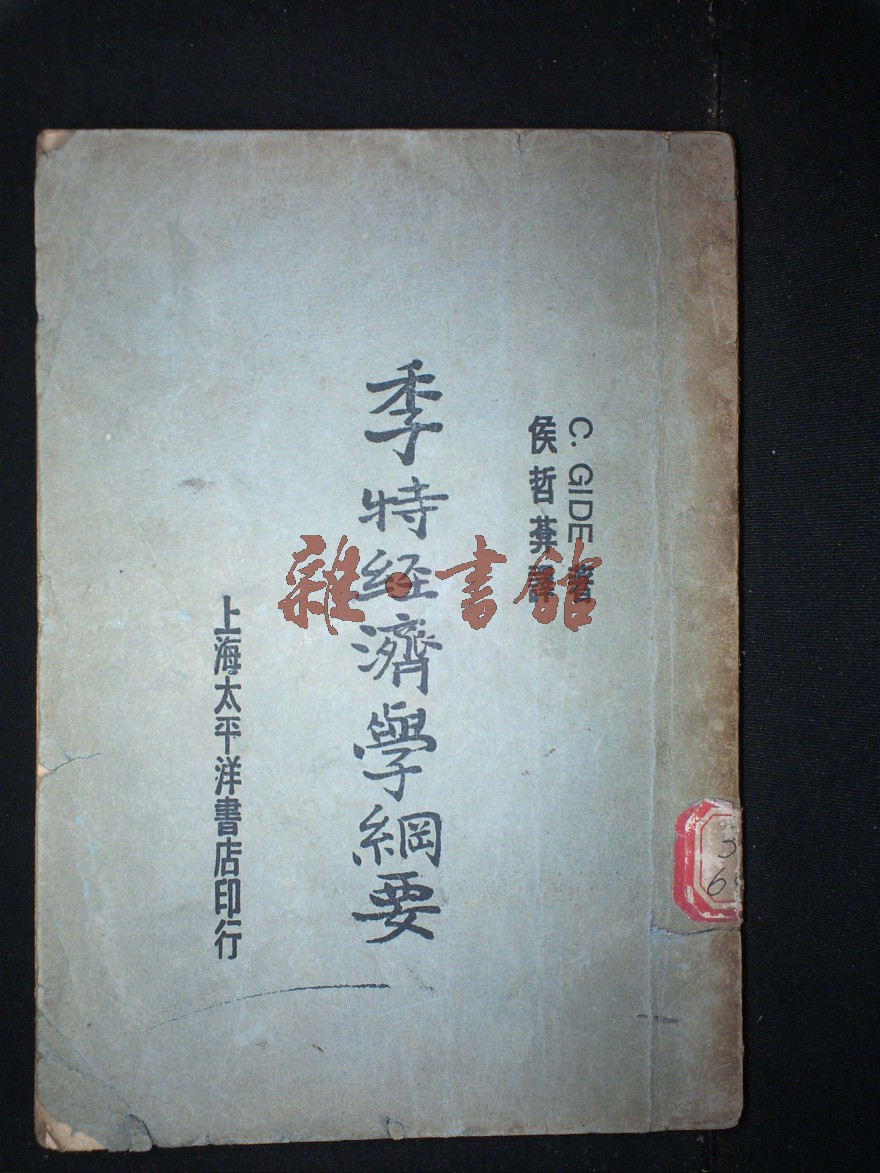 C. GIDE 著
侯哲葊譯
季特经濟學綱要
上海太平洋書店印行
雜·書館